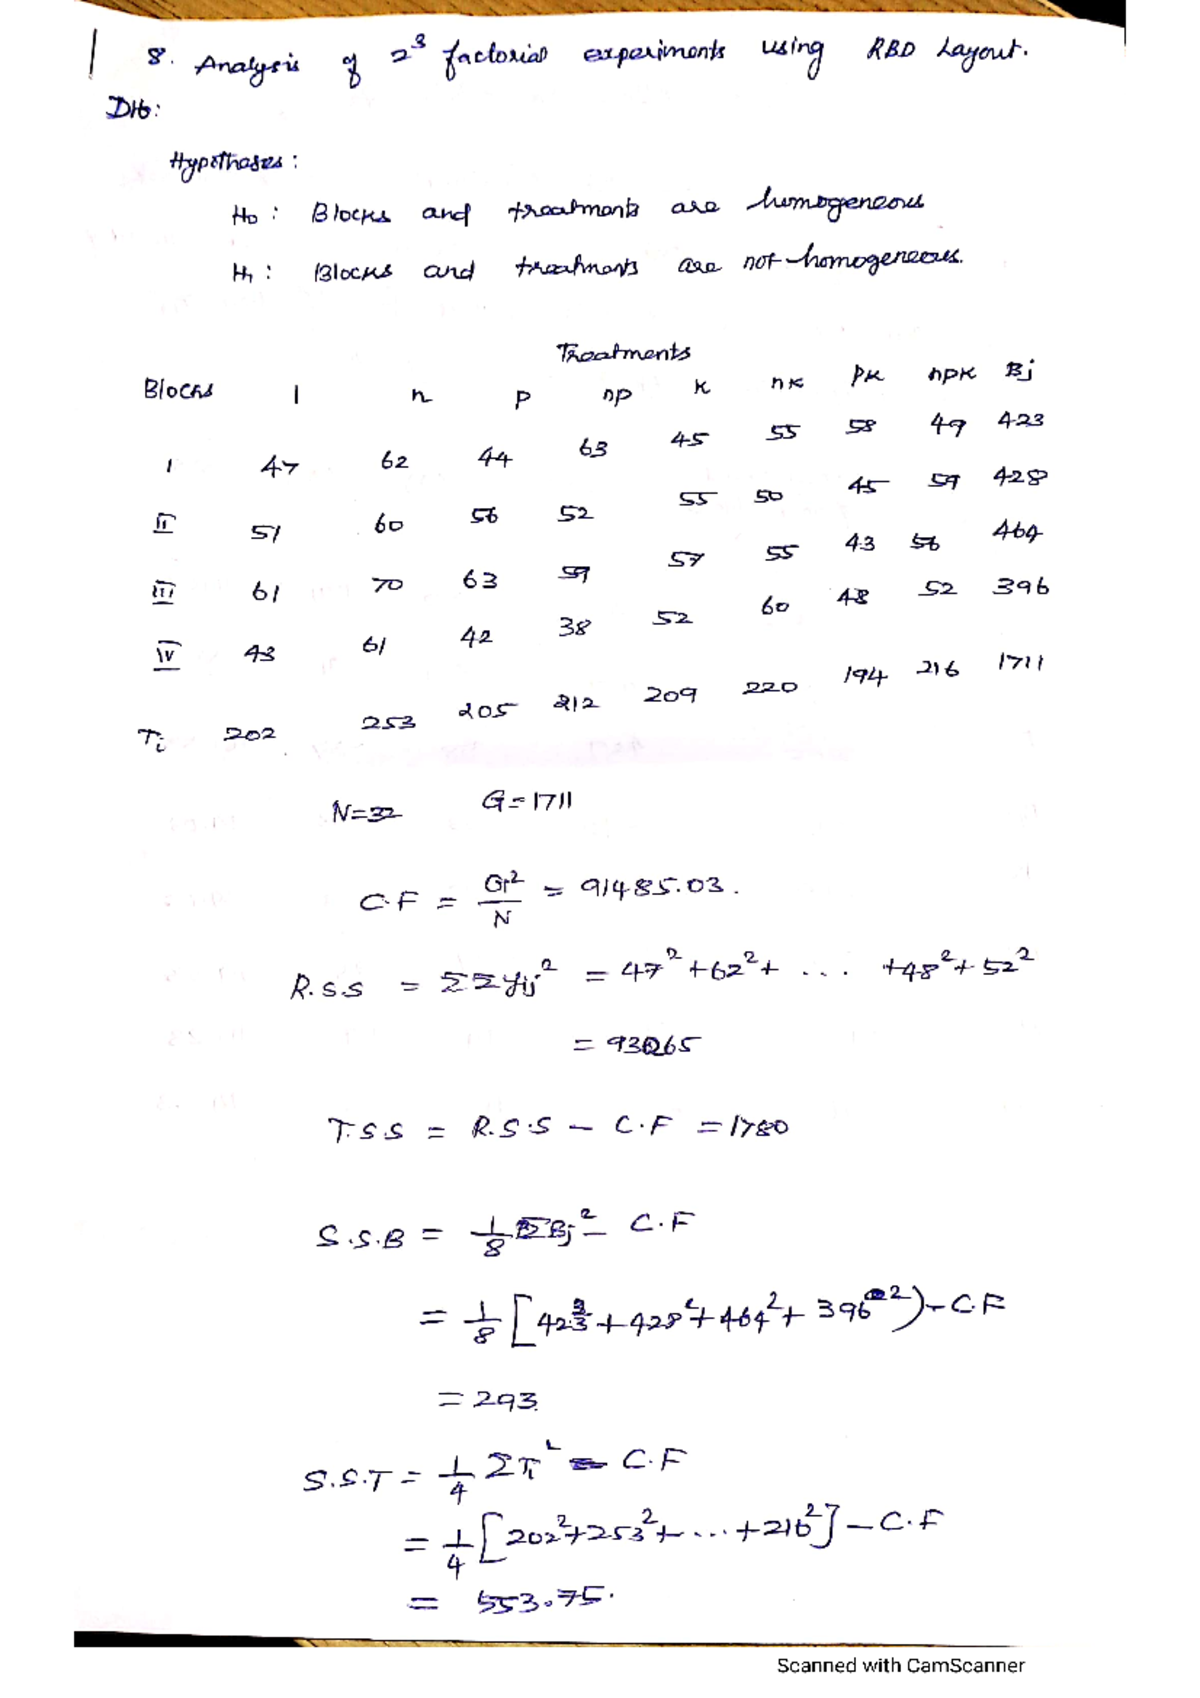 8. Analysis of 2³ factorial experiments using RBD Layout.
Hypotheses:
H₀ : Blocks and treatments are homogeneous
H₁ : Blocks and treatments are not homogeneous.
Treatments
Blocks 1 n p np k nk pk npk Bj
I 47 62 44 63 45 55 58 49 423
II 51 60 56 52 55 50 45 59 428
III 61 70 63 59 57 55 43 56 464
IV 43 61 42 38 52 60 48 52 396
Ti 202 253 205 212 209 220 194 216 1711
N=32 G=1711
C.F = G²/N = 91485.03.
R.S.S = ΣΣyij² = 47²+62²+ ... +48²+52²
= 93265
T.S.S = R.S.S – C.F = 1780
S.S.B = 1/8 ΣBj² – C.F
= 1/8 [423²+428²+464²+396²) – C.F
= 293.
S.S.T = 1/4 ΣTi² – C.F
= 1/4 [202²+253²+...+216²] – C.F
= 553.75.
Scanned with CamScanner